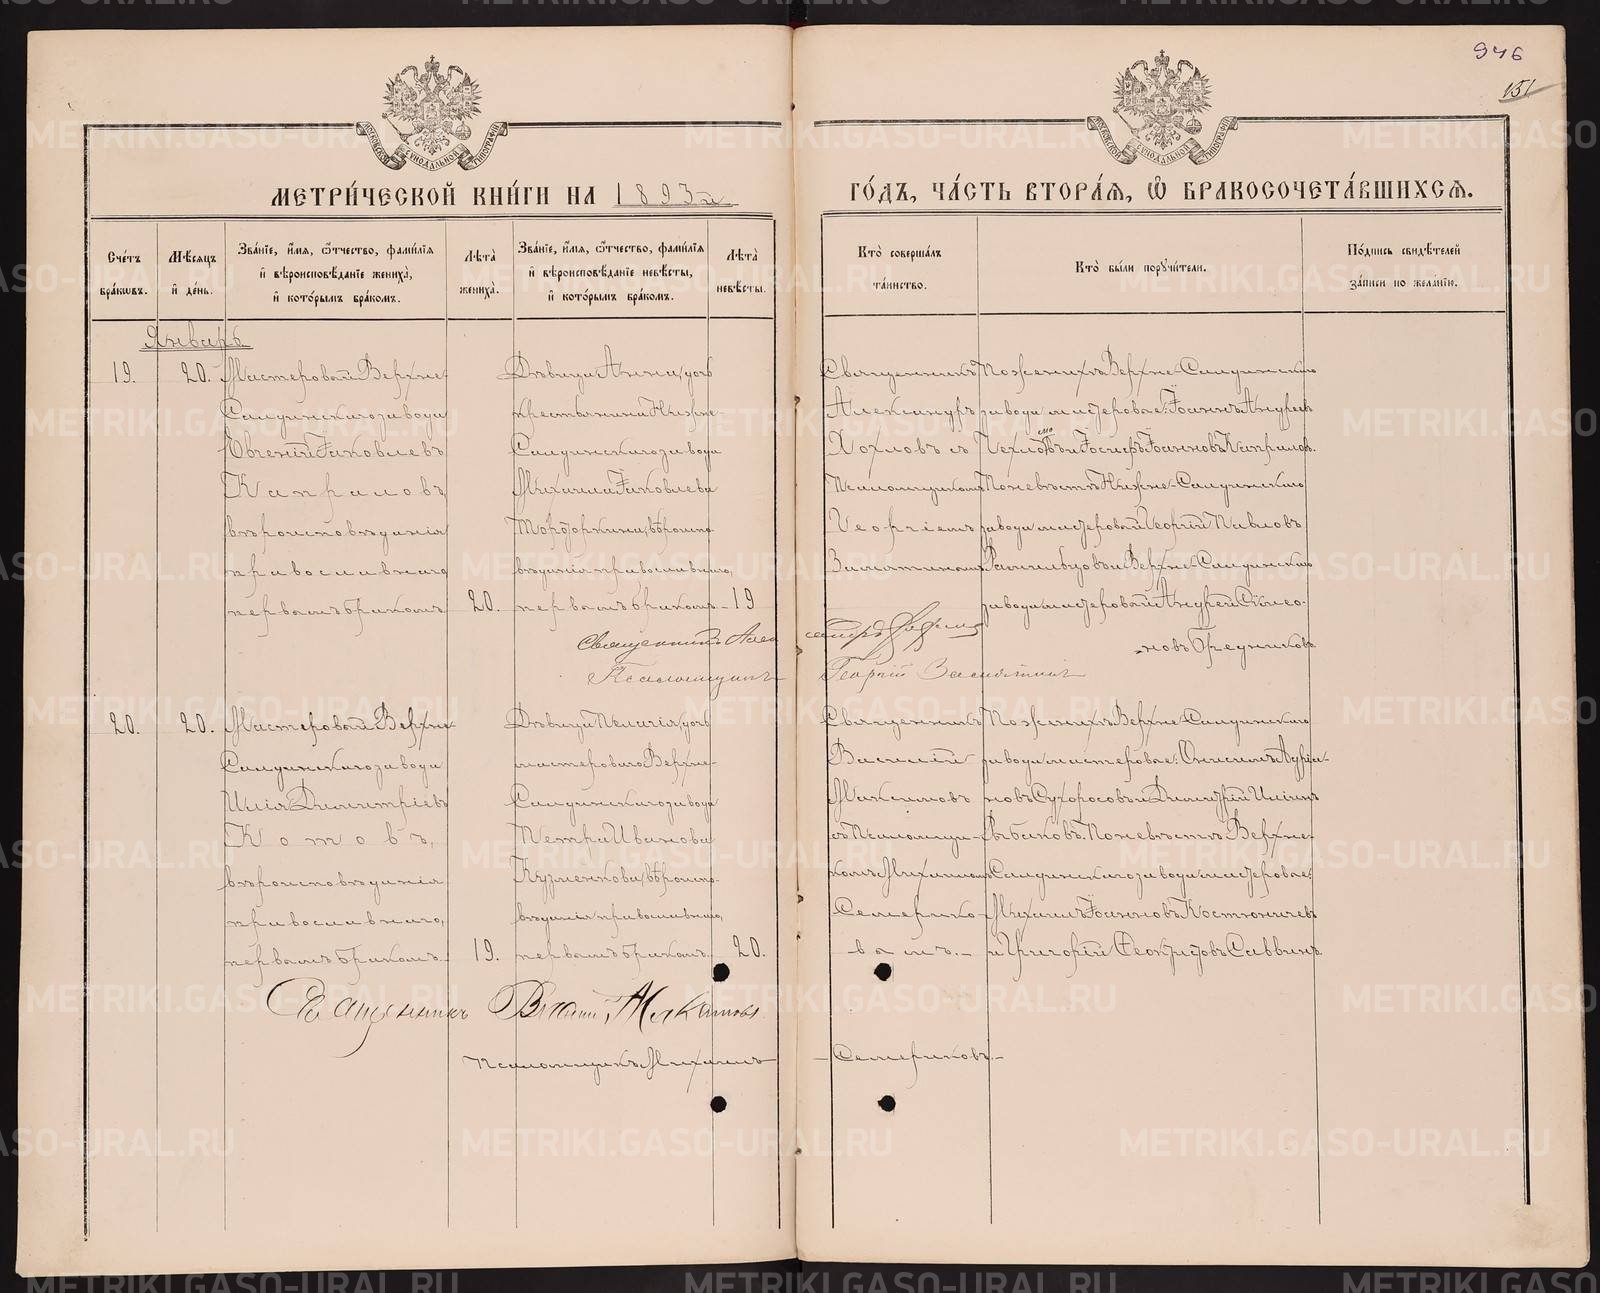 946
151
МОСКОВСКОЙ СѴНОДАЛЬНОЙ ТИПОГРАФІИ
МОСКОВСКОЙ СѴНОДАЛЬНОЙ ТИПОГРАФІИ
МЕТРИ́ЧЕСКОЙ КНИ́ГИ НА 1893й
ГО́ДЪ, ЧА́СТЬ ВТОРА́Ѧ, Ѡ БРАКОСОЧЕТА́ВШИХСѦ.
Сче́тъ бра́кѡвъ.
Мѣ́сяцъ и де́нь.
Зва́нїе, и́мя, ѻ́тчество, фами́лїя и вѣроисповѣ́данїе жениха̀, и кото́рымъ бра́комъ.
Лѣ́та жениха̀.
Зва́нїе, и́мя, ѻ́тчество, фами́лїя и вѣроисповѣ́данїе невѣ́сты, и кото́рымъ бра́комъ.
Лѣ́та невѣ́сты.
Кто̀ соверша́лъ та́инство.
Кто̀ бы́ли поручи́тели.
По́дпись свидѣ́телей за́писи по жела́нїю.
Январь
19.
20.
Мастеровой Верхне-
Салдинскаго завода
Евгеній Іаковлевъ
Капраловъ,
вѣроисповѣданія
православнаго,
первымъ бракомъ.
20.
Дѣвица Анна, дочь
крестьянина Нижне-
Салдинскаго завода
Михаила Іаковлева
вѣроиспо-
вѣданія православнаго,
первымъ бракомъ.
19
Священникъ
Александръ
Хохловъ съ
Псаломщикомъ
Георгіемъ
Замятинымъ
По женихѣ Верхне-Салдинскаго
завода мастеровые: Іоаннъ Андреевъ
и Іосифъ Іоанновъ Капраловъ.
По невѣстѣ Нижне-Салдинскаго
завода мастеровой Георгій Павловъ
и Верхне-Салдинскаго
завода мастеровой Андрей
Священникъ Александръ Хохловъ
Псаломщикъ Георгій Замятинъ
20.
20.
Мастеровой Верхне-
Салдинскаго завода
Илія Димитріевъ
Котовъ,
вѣроисповѣданія
православнаго,
первымъ бракомъ.
19.
Дѣвица Пелагія, дочь
мастероваго Верхне-
Салдинскаго завода
Петра Иванова
Кузменкова, вѣроиспо-
вѣданія православнаго,
первымъ бракомъ.
20.
Священникъ
Василій
Максимовъ
съ Псаломщи-
комъ Михаиломъ
Семерико-
вымъ.
По женихѣ Верхне-Салдинскаго
завода мастеровые: Онисимъ Адріа-
новъ Сухоросовъ и Димитрій Иліинъ
Рыбаковъ. По невѣстѣ Верхне-
Салдинскаго завода мастеровые:
Михаилъ Іоанновъ Костюничевъ
и Григорій Ѳеоктистовъ Саввинъ.
Священникъ Василій Максимовъ
Псаломщикъ Михаилъ Семериковъ.
METRIKI.GASO-URAL.RU